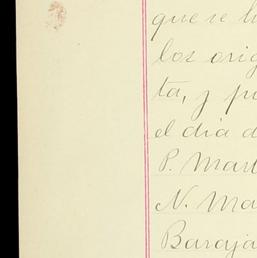 que se h
los orig
ta, y p
el dia d
P. Mart
N. Ma
Baraja